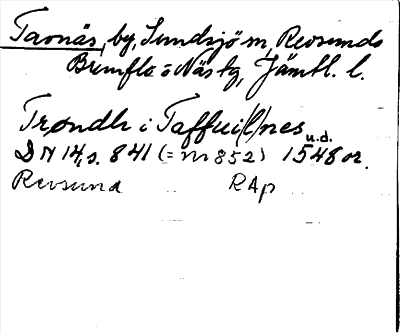 Tavnäs, by, Sundsjö sn, Revsunds
Brunflo o Näs tg, Jämtl. l.
Trøndh i Taffui(l)nes u.d.
DN 14, s. 841 (= nr 852) 1548 or.
Revsund RAp